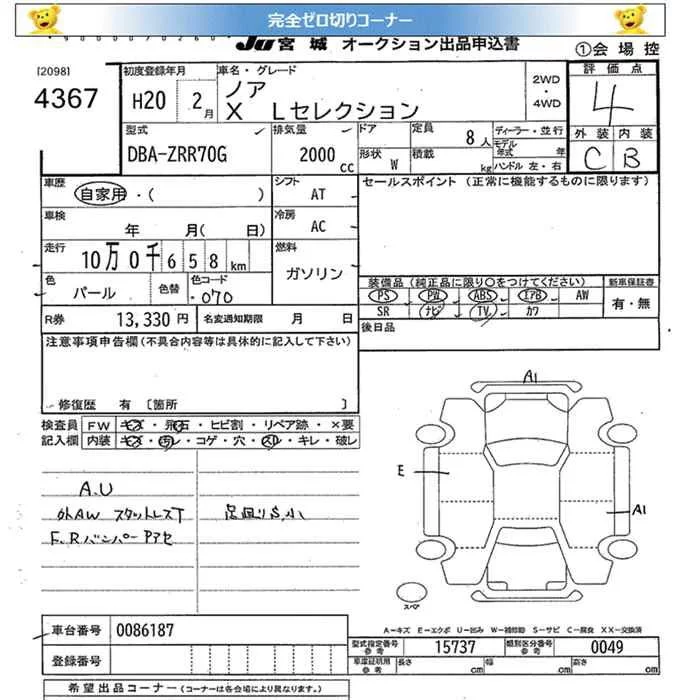 完全ゼロ切りコーナー
JU宮城 オークション出品申込書
①会場控
[2098]
4367
初度登録年月
H20 2月
車名・グレード
ノア
X Lセレクション
2WD
・
4WD
評価点
4
外装 内装
C B
型式
DBA-ZRR70G
排気量
2000 cc
ドア 定員 8人
形状 W 積載 kg
ディーラー・並行
モデル年式 年
ハンドル 左・右
車歴
自家用・( )
シフト
AT
セールスポイント (正常に機能するものに限ります)
車検
年 月( 日)
冷房
AC
走行
10万0千658km
燃料
ガソリン
色
パール
色替
色コード
070
装備品 (純正品に限り○をつけてください)
新車保証書
PS PW ABS エアB AW
SR ナビ TV カワ
有・無
R券 13,330円 名変通知期限 月 日
後日品
注意事項申告欄(不具合内容等は具体的に記入して下さい)
修復歴 有 〔箇所 〕
検査員記入欄
FW キズ・飛石・ヒビ割・リペア跡・×要
内装 キズ・汚レ・コゲ・穴・スレ・キレ・破レ
A.U
外AW スタットレスT 足回りS,小
F,Rバンパー Pアセ
A1
E
A1
スペア
A-キズ E-エクボ U-凹み W-補修跡 S-サビ C-腐食 XX-交換済
車台番号 0086187
登録番号
型式指定番号 参考 15737 類別区分番号 参考 0049
車庫証明用 参考 長さ cm 幅 cm 高さ cm
希望出品コーナー (コーナーは各会場により異なります。)